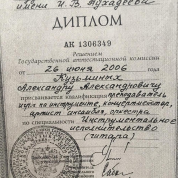 имени Н. В. Пухадеева
ДИПЛОМ
АК 1306349
Решением
Государственной аттестационной комиссии
от 26 июня 2006 года
Кузьминых
Александру Александровичу
присваивается квалификация преподаватель
игры на инструменте, концертмейстер,
артист ансамбля, оркестра
по специальности Инструментальное
исполнительство
(гитара)